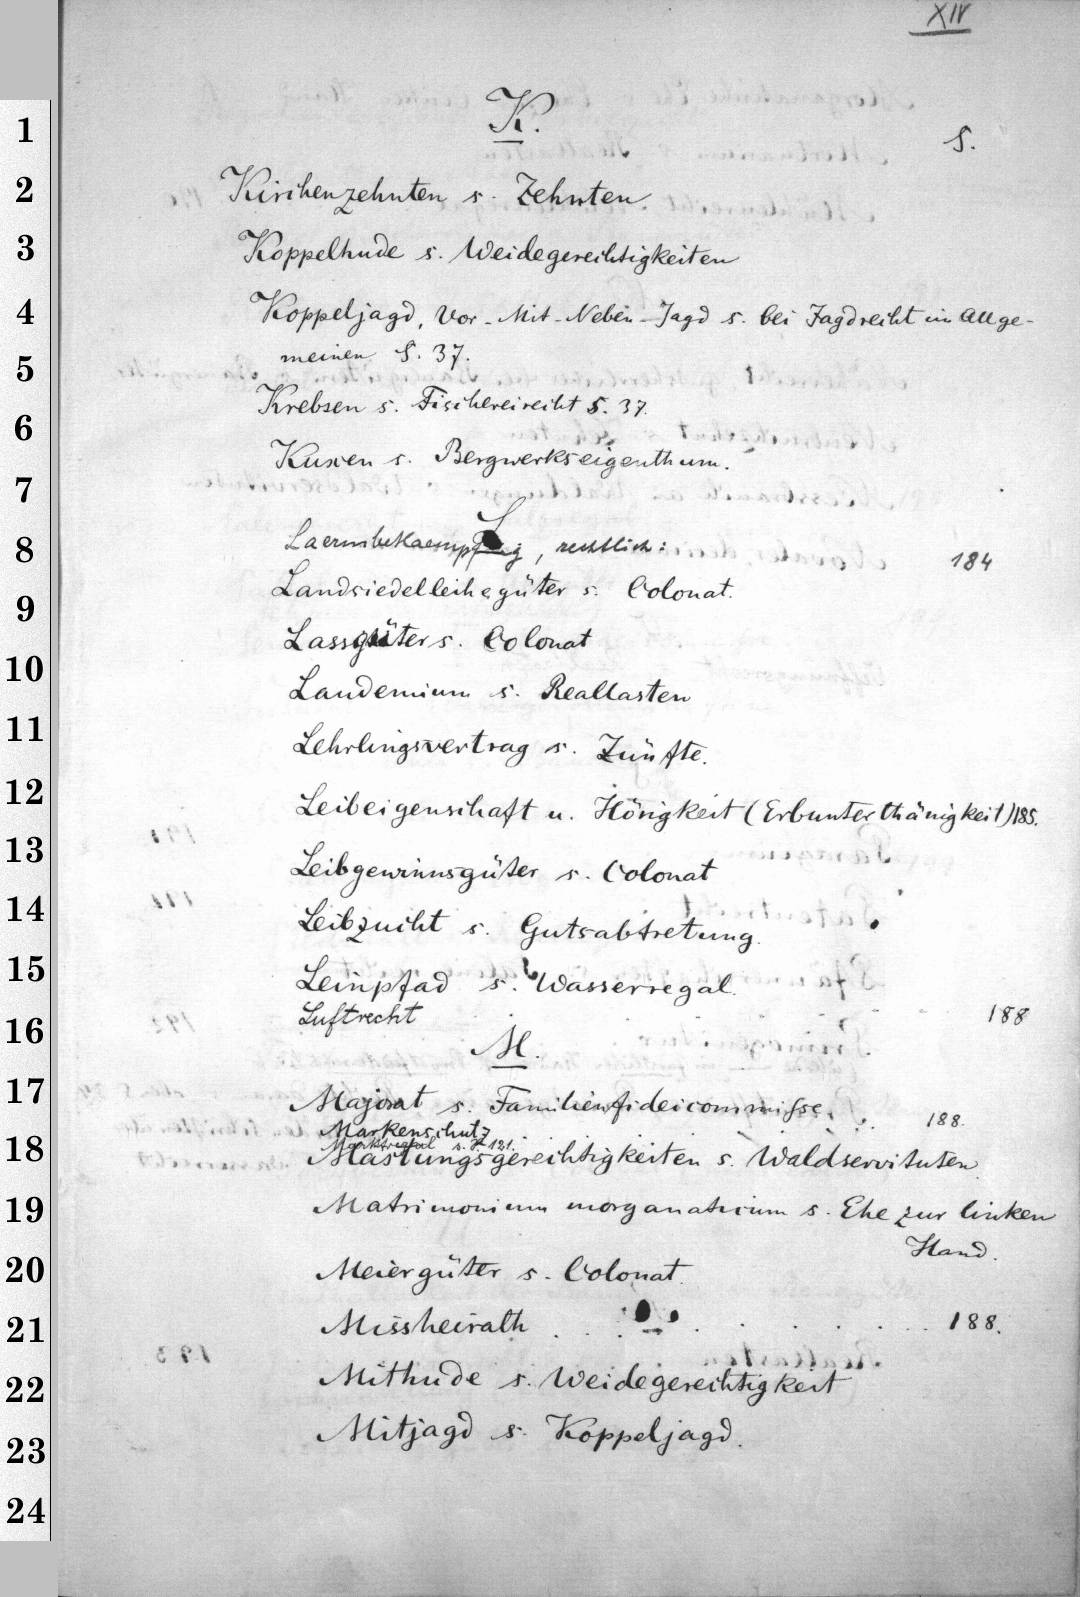 XIV
K.
S.
Kirchenzehnten s. Zehnten
Koppelhude s. Weidegerechtigkeiten
Koppeljagd, Vor-Mit-Neben-Jagd s. bei Jagdrecht im Allge-
meinen S. 37.
Krebsen s. Fischereirecht S. 37.
Kuxen s. Bergwerkseigenthum.
L
Laermbekaempfung, rechtlich: 184
Landsiedelleihegüter s. Colonat.
Lassgüter s. Colonat
Laudemium s. Reallasten
Lehrlingsvertrag s. Zünfte.
Leibeigenschaft u. Hörigkeit (Erbunterthänigkeit) 185.
Leibgewinnsgüter s. Colonat
Leibzucht s. Gutsabtretung.
Leinpfad s. Wasserregal.
Luftrecht 188
M.
Majorat s. Familienfideicommisse.
Markenschutz 188.
Marktregal s. S. 121.
Mastungsgerechtigkeiten s. Waldservituten
Matrimonium morganaticum s. Ehe zur linken
Hand.
Meiergüter s. Colonat.
Missheirath . . . . . . . . 188.
Mithude s. Weidegerechtigkeit
Mitjagd s. Koppeljagd.
1
2
3
4
5
6
7
8
9
10
11
12
13
14
15
16
17
18
19
20
21
22
23
24